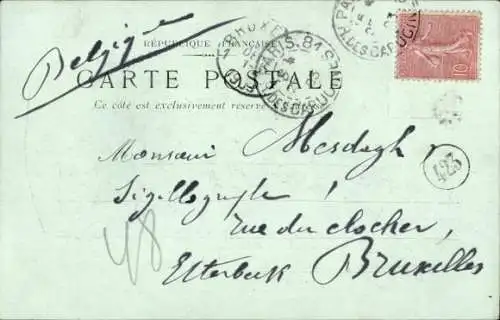 Belgique
RÉPUBLIQUE FRANÇAISE
CARTE POSTALE
Ce côté est exclusivement réservé
10
423
Monsieur Mesdagh
Sigillographe
rue du clocher,
Etterbeek Bruxelles
48